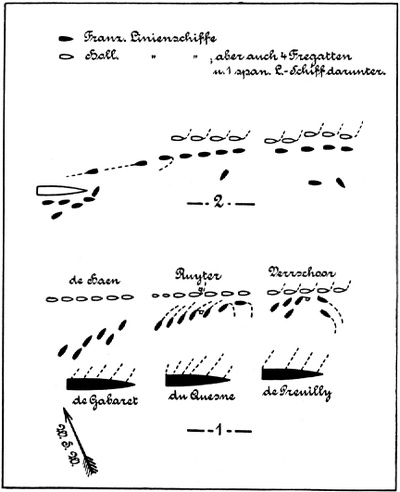 Franz. Linienschiffe
Holl. " " , aber auch 4 Fregatten
u. 1 span. L-Schiff darunter.
—2—
de Haen Ruyter Verrschoor
de Gabaret du Quesne de Preuilly
—1—
W. S. W.